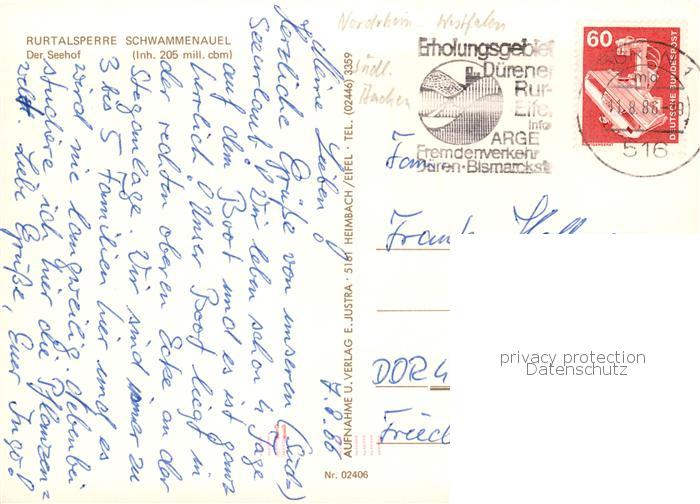 RURTALSPERRE SCHWAMMENAUEL
Der Seehof (Inh. 205 mill. cbm)
7.8.86
Meine Lieben!
Herzliche Grüße von unserem (Süd-)
Seeurlaub. Wir leben schon 4 Tage
auf dem Boot und es ist ganz
herrlich. Unser Boot liegt in
der rechten oberen Ecke an der
Steganlage. Wir sind immer zu
3 bis 5 Familien hier und es
wird nie langweilig. Nebenbei
studiere ich hier die Pflanzen=
welt. Liebe Grüße, Euer Ingo!
AUFNAHME U. VERLAG E. JUSTRA · 5161 HEIMBACH/EIFEL · TEL. (02446) 3359
Nr. 02406
Nordrhein-Westfalen
südl.
Aachen
Erholungsgebiet
Dürener
Rur-
Eifel
Info
ARGE
Fremdenverkehr
Düren·Bismarckst
60
DEUTSCHE BUNDESPOST
11.8.86
516
Fam.
Frank
DDR 4
Fried
privacy protection
Datenschutz